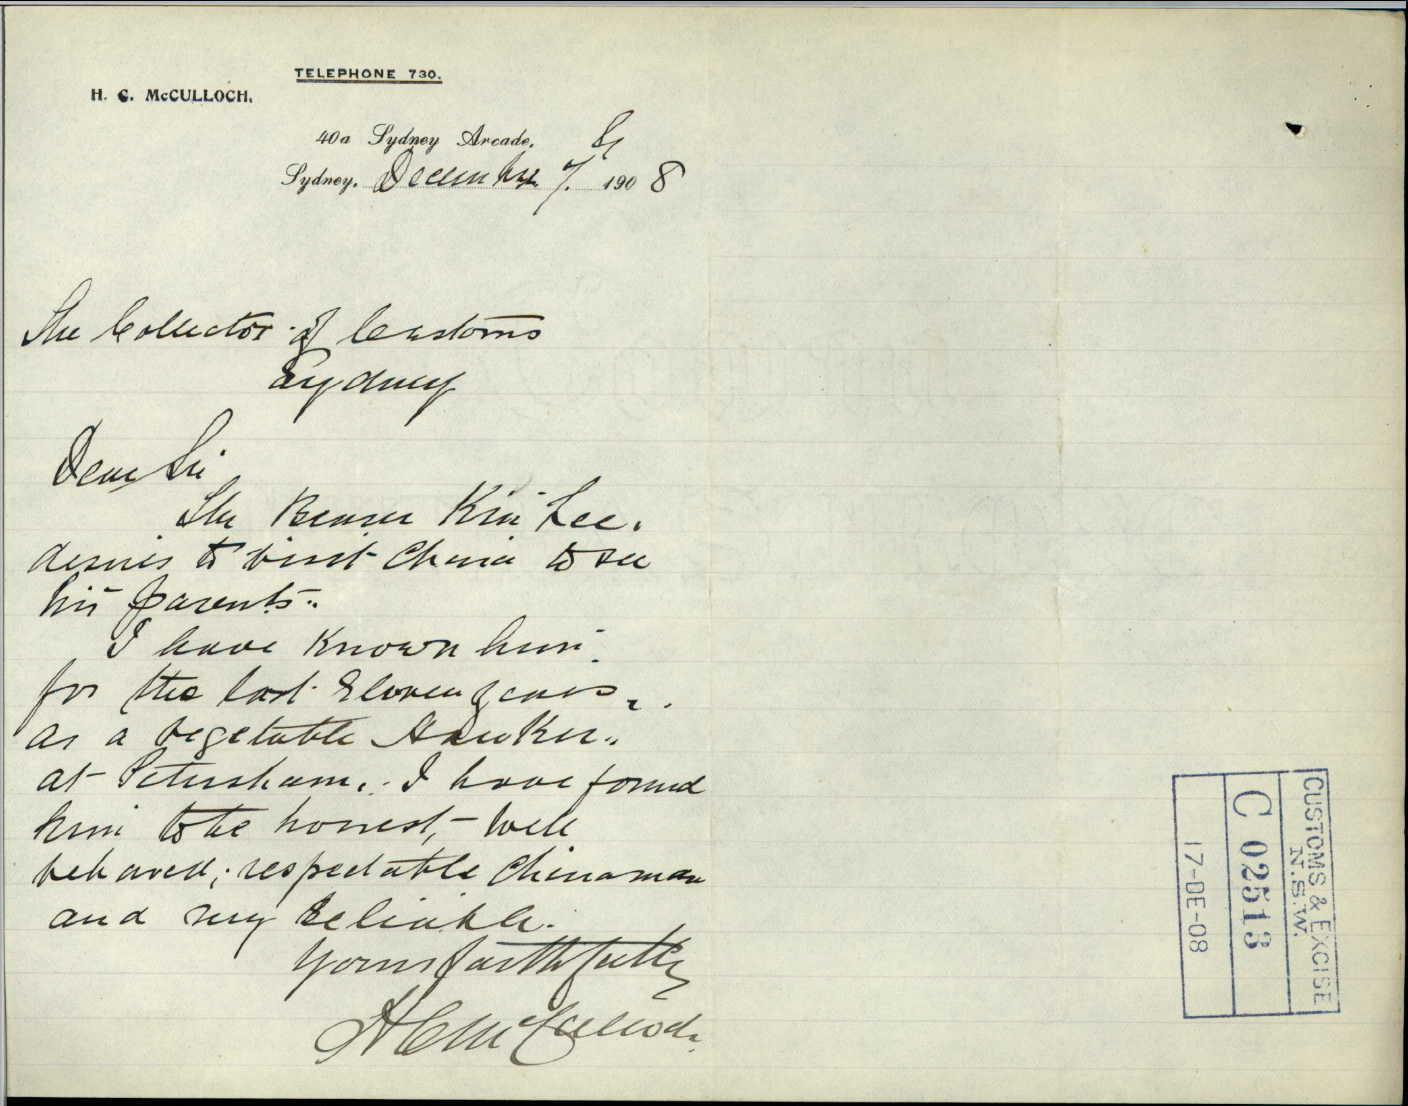 TELEPHONE 730.
H. C. McCULLOCH.
40a Sydney Arcade,
Sydney, December 7. 1908
The Collector of Customs
Sydney
Dear Sir
The Bearer Kin Lee.
desires to visit China to see
his parents.
I have known him
for the last Eleven years.
as a vegetable Hawker.
at Petersham. I have found
him to be honest, - well
behaved; respectable Chinaman
and very reliable.
Yours faithfully
H C McCulloch.
CUSTOMS & EXCISE
N.S.W.
C 02513
17-DE-08